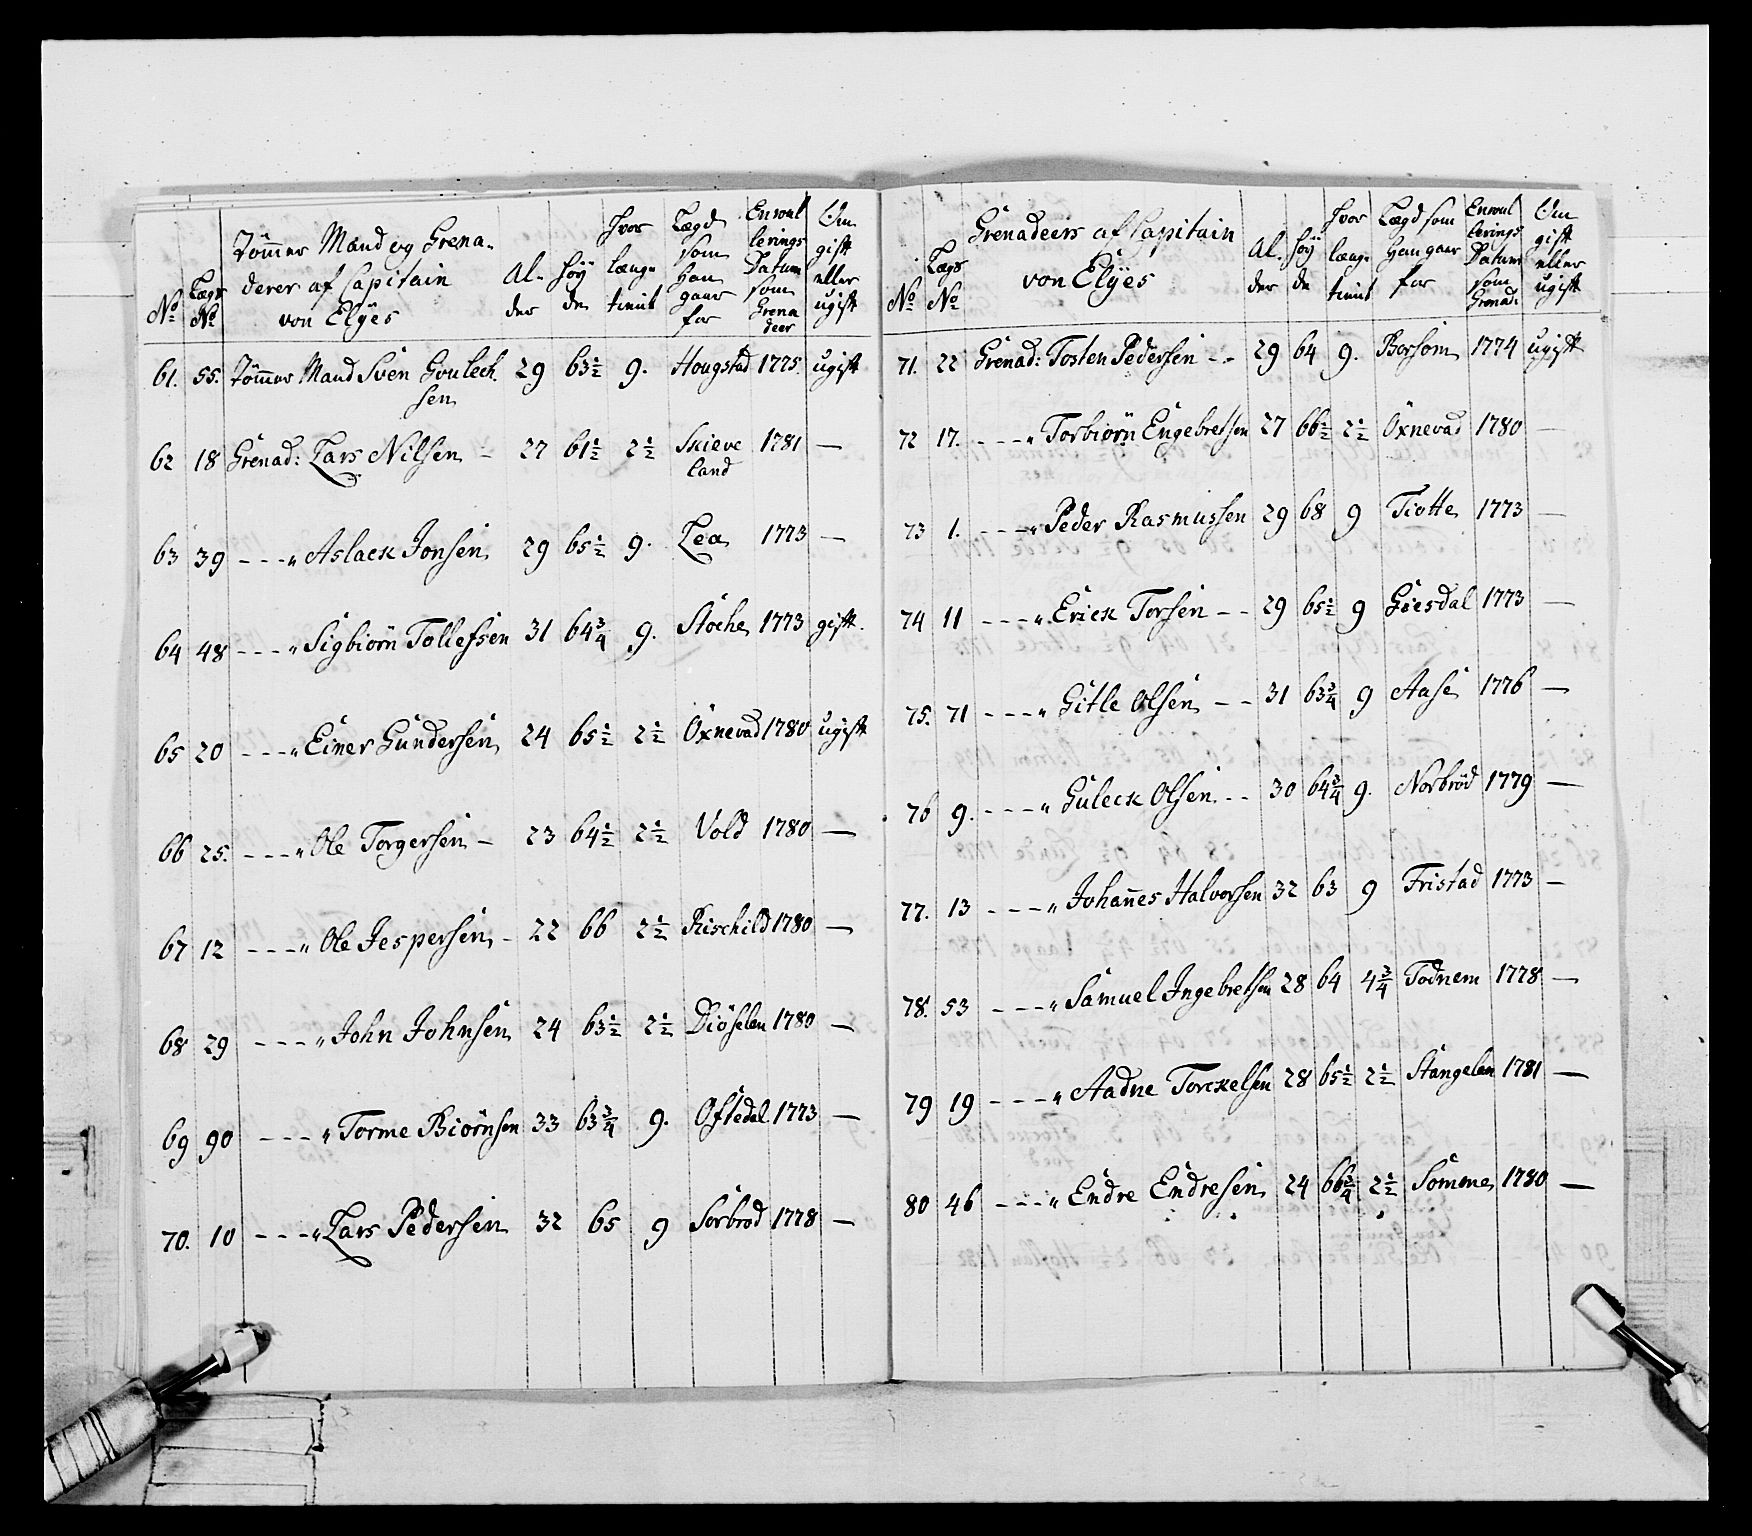 No
Lægs No
Tömmer Mand og Grenaderer af Capitain von Elÿes
Alder
Höÿde
Hvor længe tient
Lægd som Han gaar for
Enroullerings Datum som Grenadeer
Om gift eller ugift
61. 55. Tömmer Mand Sven Goulechsen 29 63½ 9. Hougstad 1775. ugift
62 18 Grenad: Lars Nilsen - 27 61½ 2½ Skieveland 1781 —
63 39 - - - " Aslack Jonsen 29 65½ 9. Lea 1773 —
64 48 - - - " Sigbiörn Tollefsen 31 64¾ 9. Stöche 1773 gift.
65 20 - - - " Einer Gundersen 24 65½ 2½ Öxnevad 1780 ugift
66 25. - - - " Ole Torgersen - 23 64½ 2½ Vold 1780 —
67 12 - - - " Ole Jespersen - 22 66 2½ Rischild 1780 —
68 29 - - - " John Johnsen 24 63½ 2½ Diöselen 1780 —
69 90 - - - " Torme Biörnsen 33 63¾ 9. Oftedal 1773 —
70. 10 - - - " Lars Pedersen 32 65 9 Sörbrod 1778 —
No
Lægs No
Grenadeers af Capitain von Elÿes
Alder
Höÿde
Hvor længe tient
Lægd som Han gaar for
Enroullerings Datum som Grenad:
Om gift eller ugift
71. 22 Grenad: Tosten Pedersen - - 29 64 9. Borsöm 1774 ugift
72 17. - - - " Torbiörn Engebretsen 27 66½ 2½ Öxnevad 1780 —
73 1. - - - " Peder Rasmussen 29 68 9 Tiotte 1773 —
74 11 - - - " Erick Torsen - - 29 65½ 9 Giesdal 1773 —
75. 71 - - - " Gitle Olsen - - 31 63¾ 9 Aase 1776 —
76 9. - - - " Guleck Olsen - - 30 64¾ 9. Norbröd 1779 —
77. 13 - - - " Johañes Halvorsen 32 63 9 Fristad 1773 —
78. 53 - - - " Samuel Ingebretsen 28 64 4¾ Todnem 1778 —
79 19 - - - " Aadne Torckelsen 28 65½ 2½ Stangelan 1781 —
80 46 - - - " Endre Endresen 24 66¾ 2½ Somme 1780 —